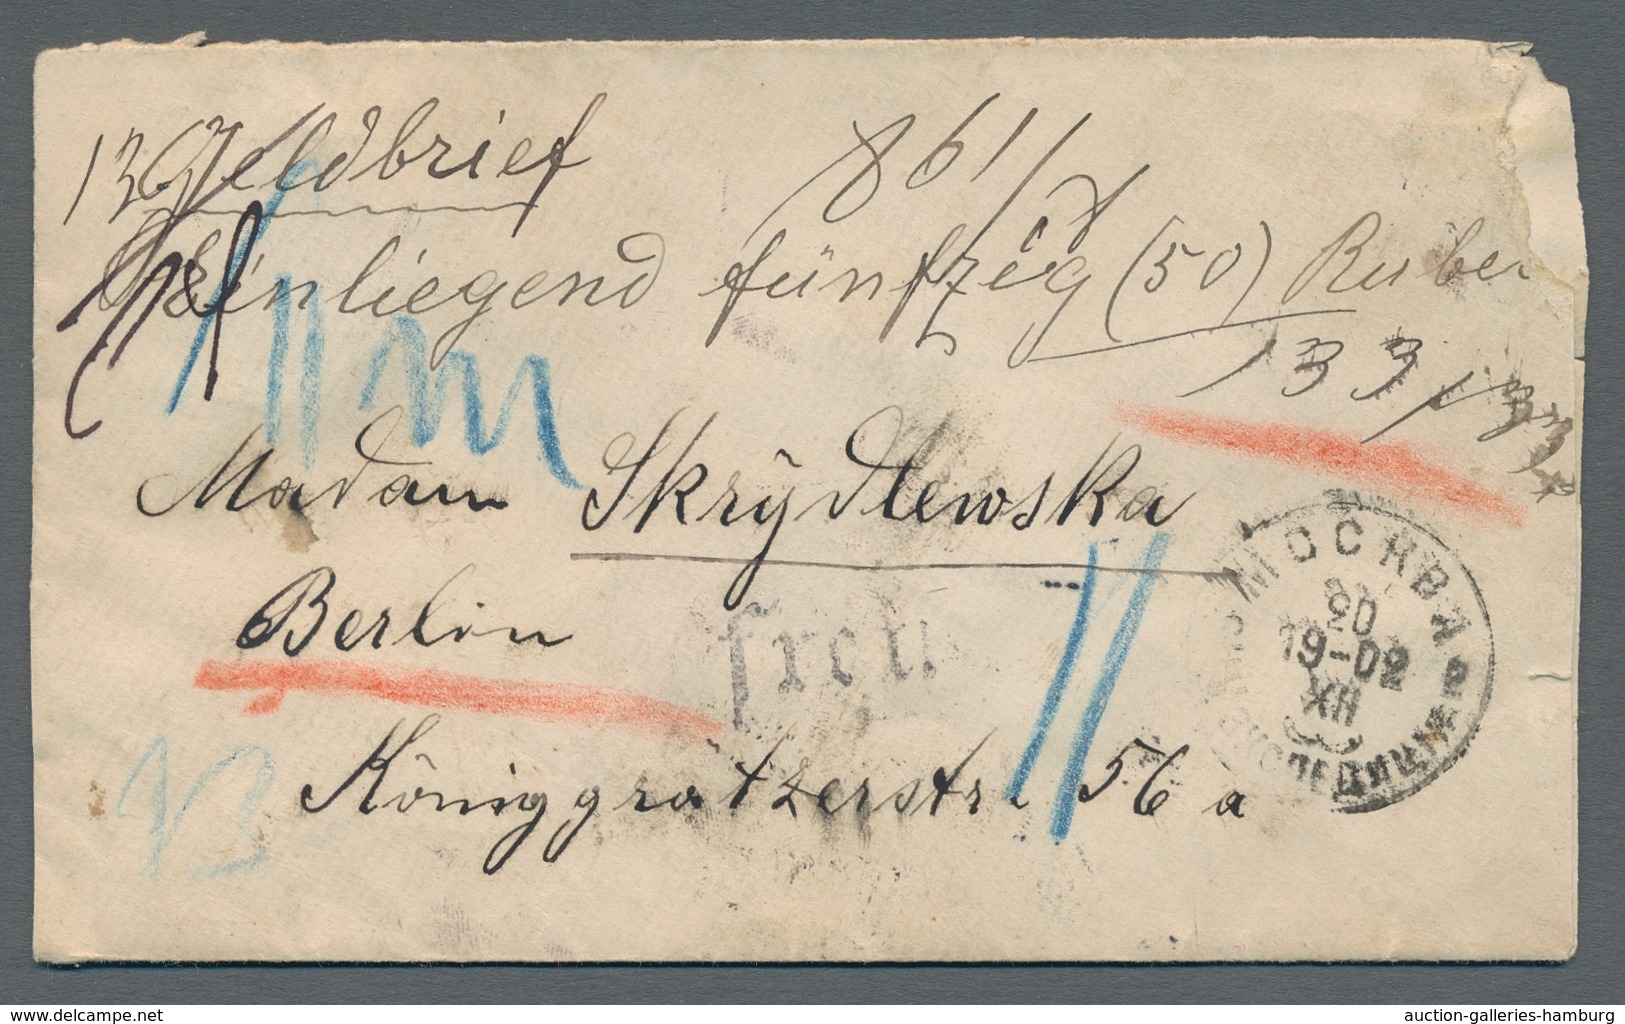 Geldbrief
861
Einliegend fünfzig (50) Rubel
133
Madam Skrÿdlewska
Berlin
frei
Königgratzerstr. 56 a
МОСКВА
20
19-02
XII
ЭКСПЕДИЦИЯ
www.delcampe.net
auction-galleries-hamburg